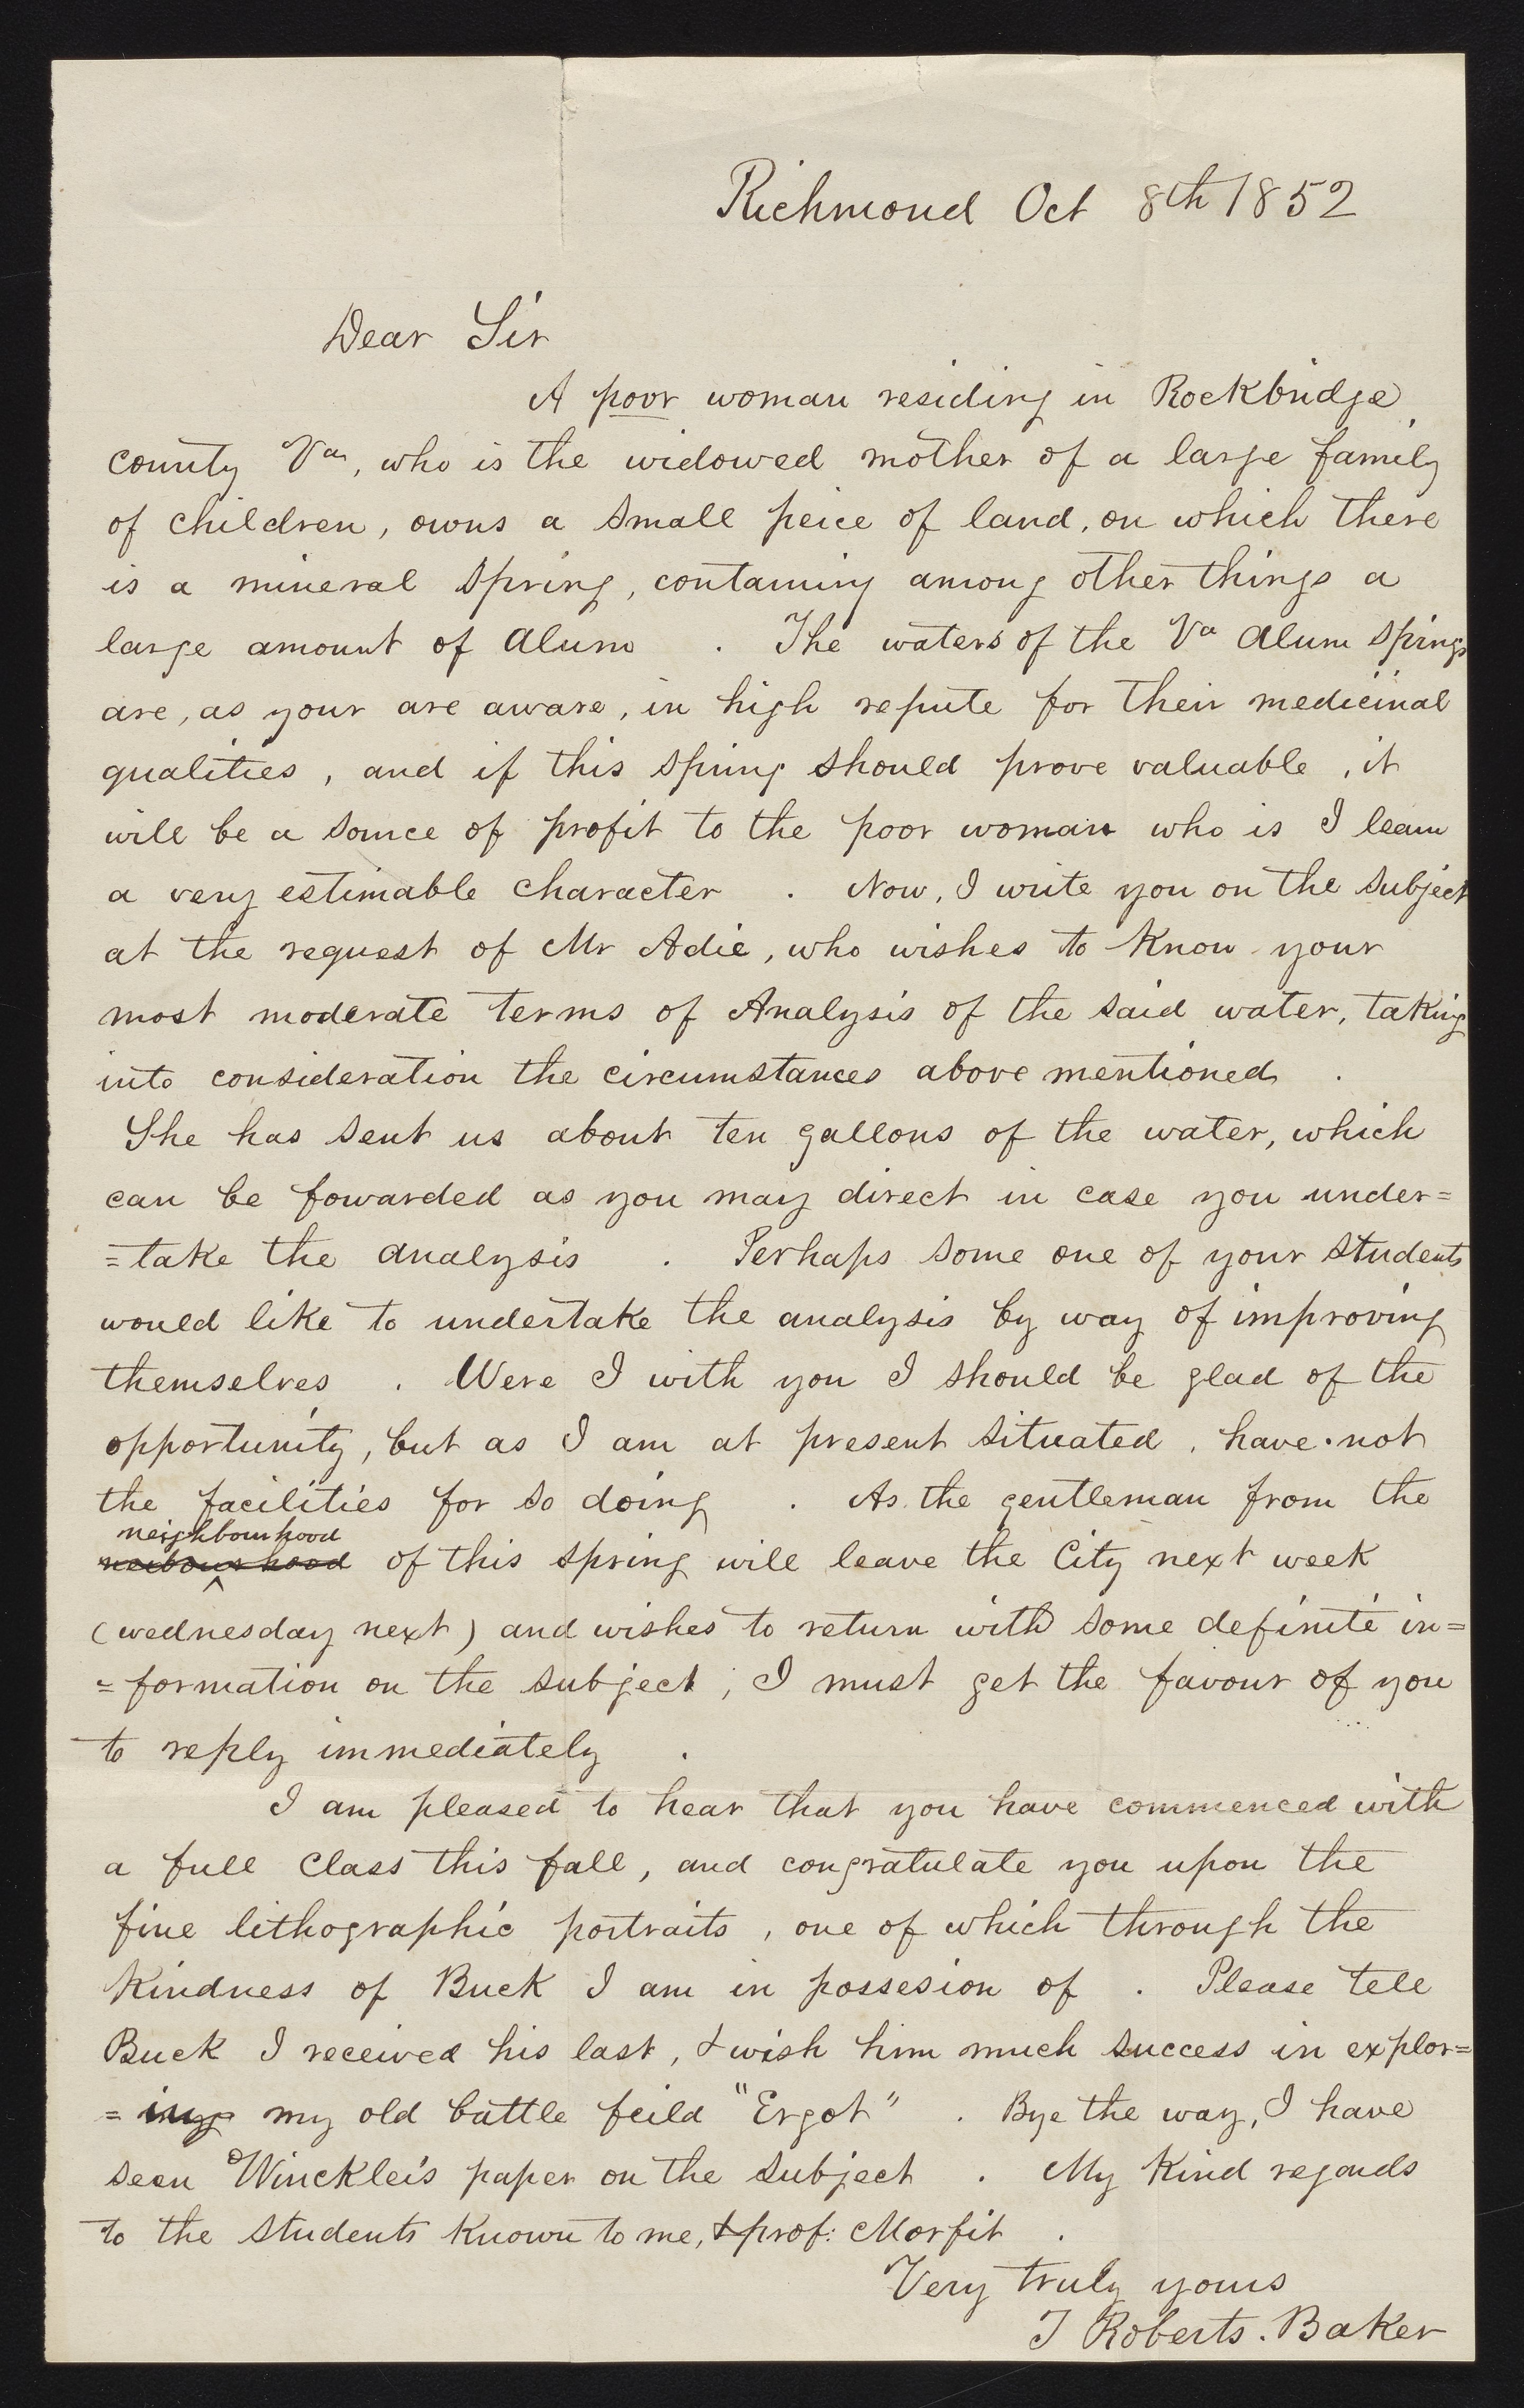 Richmond Oct 8th 1852
Dear Sir
A poor woman residing in Rockbridge
county Va, who is the widowed mother of a large family
of children, owns a small peice of land, on which there
is a mineral spring, containing among other things a
large amount of Alum . The waters of the Va Alum Springs
are, as your are aware, in high repute for their medicinal
qualities, and if this spring should prove valuable, it
will be a source of profit to the poor woman who is I learn
a very estimable character . Now, I write you on the subject
at the request of Mr Adie, who wishes to know your
most moderate terms of Analysis of the said water, taking
into consideration the circumstances above mentioned .
She has sent us about ten gallons of the water, which
can be fowarded as you may direct in case you under=
=take the analysis . Perhaps some one of your students
would like to undertake the analysis by way of improving
themselves . Were I with you I should be glad of the
opportunity, but as I am at present situated, have not
the facilities for so doing . As the gentleman from the
neighbourhood
neibourhood of this spring will leave the City next week
(wednesday next) and wishes to return with some definite in=
=formation on the subject; I must get the favour of you
to reply immediately .
I am pleased to hear that you have commenced with
a full class this fall, and congratulate you upon the
fine lithographic portraits, one of which through the
kindness of Buck I am in possesion of . Please tell
Buck I received his last, & wish him much success in explor=
=ing my old battle feild "Ergot" . Bye the way, I have
seen Winckler's paper on the subject . My kind regards
to the students known to me, & prof: Morfit .
Very truly yours
T Roberts. Baker